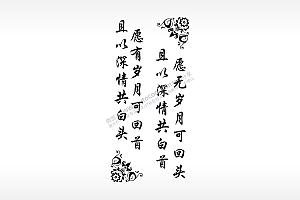 愿无岁月可回头
且以深情共白首
愿有岁月可回首
且以深情共白头